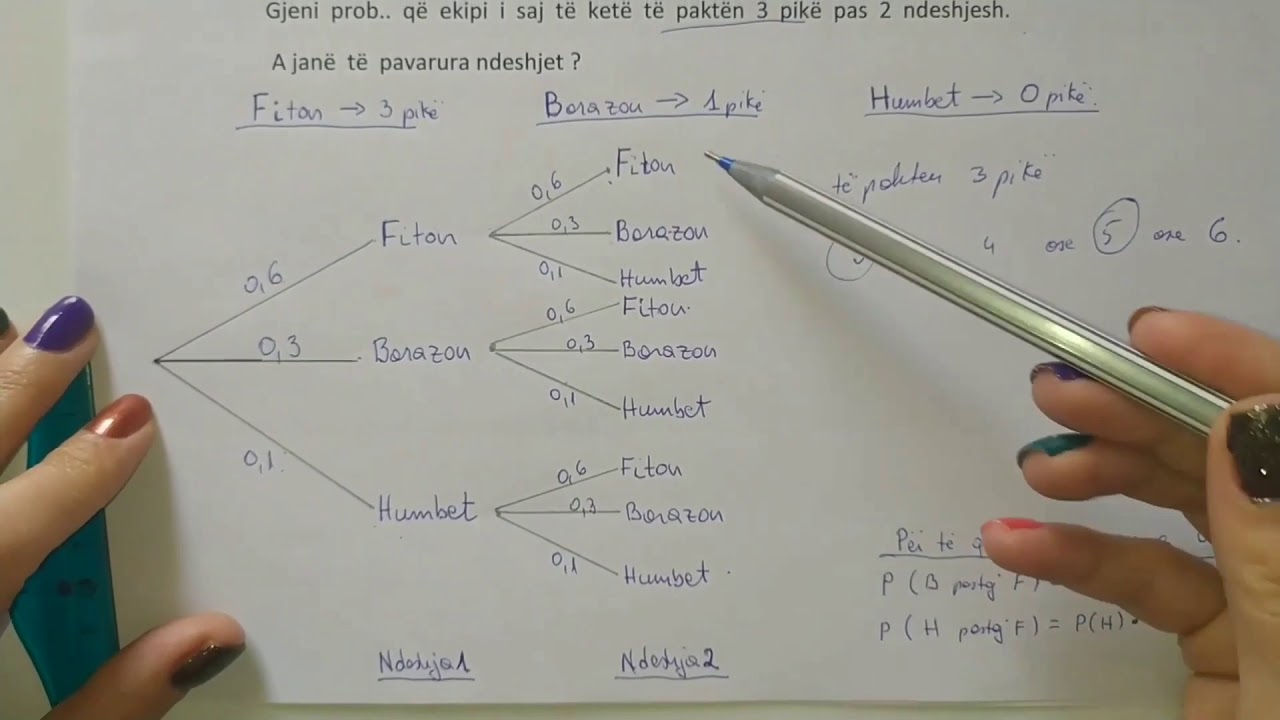 Gjeni prob.. që ekipi i saj të ketë të paktën 3 pikë pas 2 ndeshjesh.
A janë të pavarura ndeshjet ?
Fiton → 3 pikë
Barazon → 1 pikë
Humbet → 0 pikë.
të pakten 3 pikë
4 ose 5 ose 6.
0,6 Fiton
0,6 Fiton
0,3 Barazon
0,1 Humbet
0,3 Barazon
0,6 Fiton.
0,3 Barazon
0,1 Humbet
0,1 Humbet
0,6 Fiton
0,3 Barazon
0,1 Humbet
Për të
P (B pastaj F)
P (H pastaj F) = P(H) •
Ndeshja 1
Ndeshja 2